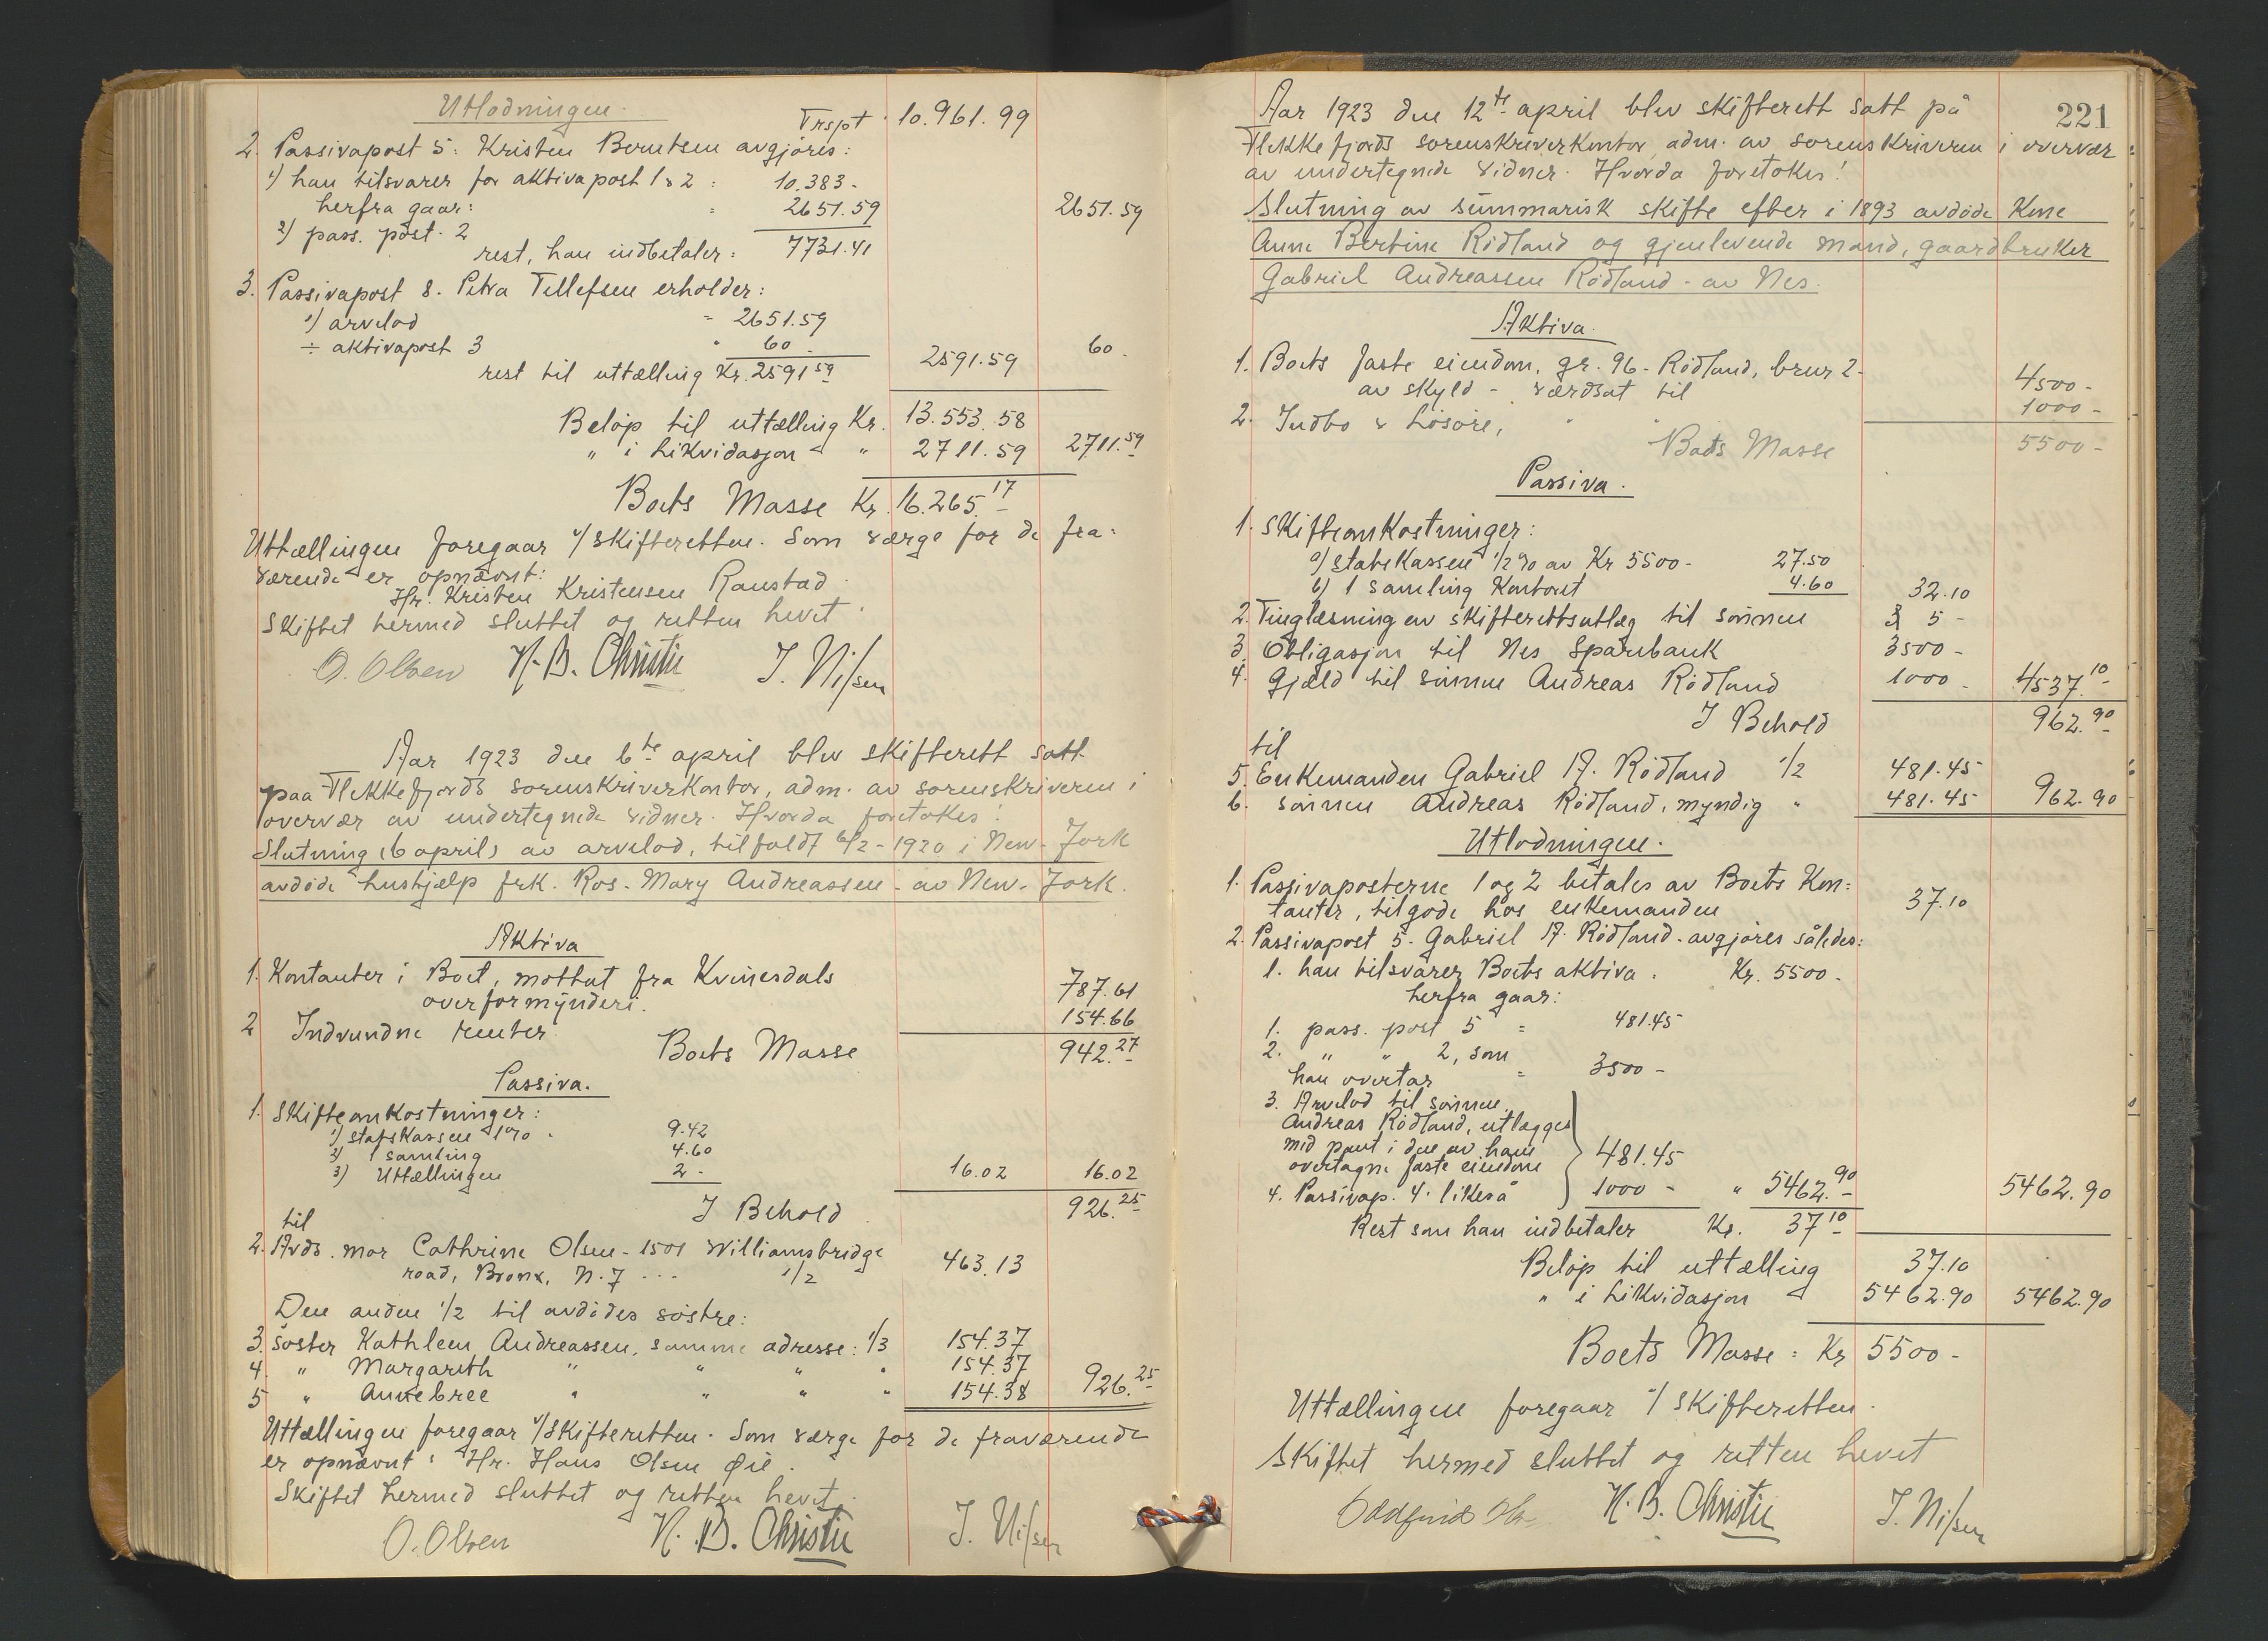 Utlodningen.
Trspt. 10.961.99
2. Passivapost 5: Kristen Berntsen avgjøres:
1) han tilsvarer for aktivapost 1 & 2 : 10.383-
herfra gaar: = 2651.59 2651.59
2) pass. post. 2
rest, han indbetaler = 7731.41
3. Passivapost 8. Petra Tellefsen erholder:
1) arvelod = 2651.59
÷ aktivapost 3 " 60 - 60 -
rest til uttælling Kr. 2591 59 2591.59
Beløp til uttælling Kr. 13.553.58
" i Likvidasjon " 2711.59 2711.59
Boets Masse Kr. 16.265.17
Uttællingen foregaar v/skifteretten. Som værge for de fra=
værende er opnævnt:
Hr. Kristen Kristensen Ranstad.
Skiftet hermed sluttet og retten hevet.
O. Olsen N. B. Christie J. Nilsen
Aar 1923 den 6te april blev skifterett satt
paa Flekkefjords sorenskriverkontor, adm. av sorenskriveren i
overvær av undertegnede vidner. Hvorda foretokes:
Slutning (6 april) av arvelod, tilfaldt 6/2-1920 i New-York
avdøde hushjælp frk. Ros-Mary Andreassen - av New-York.
Aktiva
1. Kontanter i Boet, mottat fra Kvinesdals
overformynderi. 787.61
2 Indvundne renter 154.66
Boets Masse 942.27
Passiva.
1. Skifteomkostninger:
1) statskassen 1% . 9.42
2) 1 samling 4.60
3) Uttællingen 2 - 16.02 16.02
I Behold 926.25
til
2. Avds. mor Cathrine Olsen - 1501 Williamsbridge
road, Bronx, N.Y. ... 1/2 463.13
Den anden 1/2 til avdødes søstre:
3. søster Kathleen Andreassen, samme adresse: 1/3 154.37
4. " Margareth " " " " 154.37
5 " Annebree " " " " 154.38 926.25
Uttællingen foregaar v/skifteretten. Som værge for de fraværende
er opnævnt: Hr. Hans Olsen Øie.
Skiftet hermed sluttet og retten hevet.
O. Olsen N. B. Christie J. Nilsen
221
Aar 1923 den 12te april blev skifterett satt på
Flekkefjords sorenskriverkontor, adm. av sorenskriveren i overvær
av undertegnede vidner. Hvorda foretokes:
Slutning av summarisk skifte efter i 1893 avdøde Kone
Anne Bertine Rødland og gjenlevende mand, gaardbruker
Gabriel Andreassen Rødland - av Nes.
Aktiva.
1. Boets faste eiendom, gr. 96 - Rødland, brur 2 -
av skyld - værdsat til 4500 -
2. Indbo & Løsøre, " " 1000 -
Boets Masse 5500 -
Passiva.
1. Skifteomkostninger:
a) statskassen 1/2 % av Kr 5500 - 27.50
b) 1 samling Kontoret 4.60 32.10
2. Tinglæsning av skifterettsutlæg til sønnen 5 -
3. Obligasjon til Nes Sparebank 3500 -
4. Gjæld til sønnen Andreas Rødland 1000 - 4537.10
I Behold 962.90
til
5. Enkemanden Gabriel A. Rødland 1/2 481.45
6. sønnen Andreas Rødland, myndig " 481.45 962.90
Utlodningen.
1. Passivaposterne 1 og 2 betales av Boets Kon=
tanter, tilgode hos enkemanden 37.10
2. Passivapost 5. Gabriel A. Rødland - avgjøres således:
1. han tilsvarer Boets aktiva. Kr. 5500 -
herfra gaar:
1. pass. post 5 = 481.45
2. " " 2, som
han overtar = 3500 -
3. Arvelod til sønnen
Andreas Rødland, utlægges
med pant i den av ham
overtagne faste eiendom 481.45
4. Passivap. 4. likeså 1000 - " 5462.90 5462.90
Rest som han indbetaler Kr. 37 10
Beløp til uttælling 37.10
" i Likvidasjon 5462.90 5462.90
Boets Masse = Kr 5500 -
Uttællingen foregaar v/ Skifteretten.
Skiftet hermed sluttet og retten hevet
N. B. Christie J. Nilsen